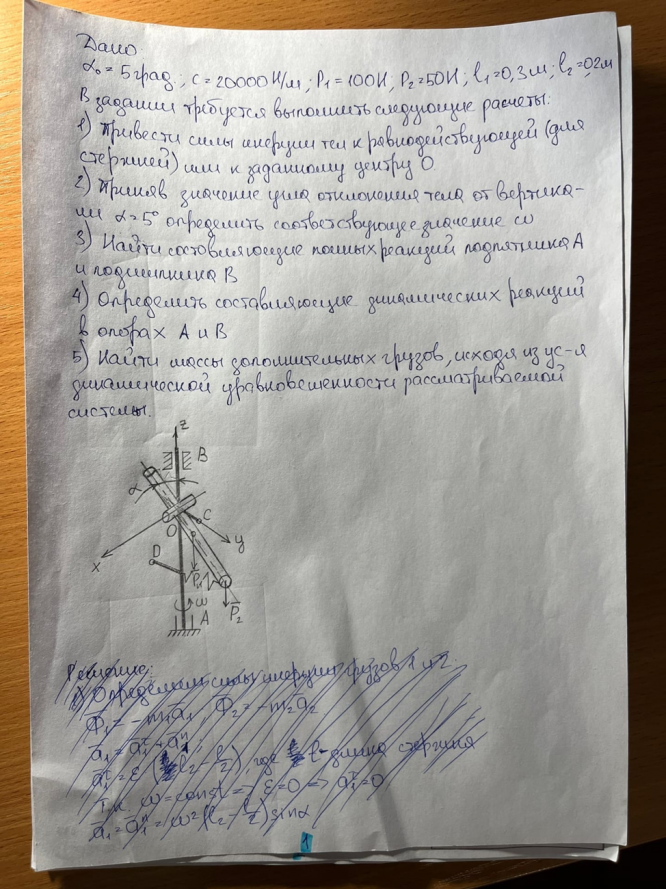 Дано
α₀ = 5град ; c = 20000 Н/м ; P₁ = 100Н ; P₂ = 50Н ; l₁ = 0,3м ; l₂ = 0,2м
В задании требуется выполнить следующие расчеты:
1) Привести силы инерции тел к равнодействующей (для
стержней) или к заданному центру O
2) Приняв значение угла отклонения тела от вертика-
ли α = 5° определить соответствующее значение ω
3) Найти составляющие полных реакций подпятника A
и подшипника B
4) Определить составляющие динамических реакций
в опорах A и B
5) Найти массы дополнительных грузов, исходя из ус-я
динамической уравновешенности рассматриваемой
системы.
z
B
α
O
C
D
x
y
P₁
ω
A
P₂
Решение:
1) Определим силы инерции грузов 1 и 2.
Φ̄₁ = -m₁ā₁ , Φ̄₂ = -m₂ā₂
ā₁ = ā₁ᵗ + ā₁ⁿ,
ā₁ᵗ = ε (l₂ - l/2), где l - длина стержня
т.к. ω = const => ε = 0 => ā₁ᵗ = 0
ā₁ = ā₁ⁿ = ω² (l₂ - l/2) sinα
1